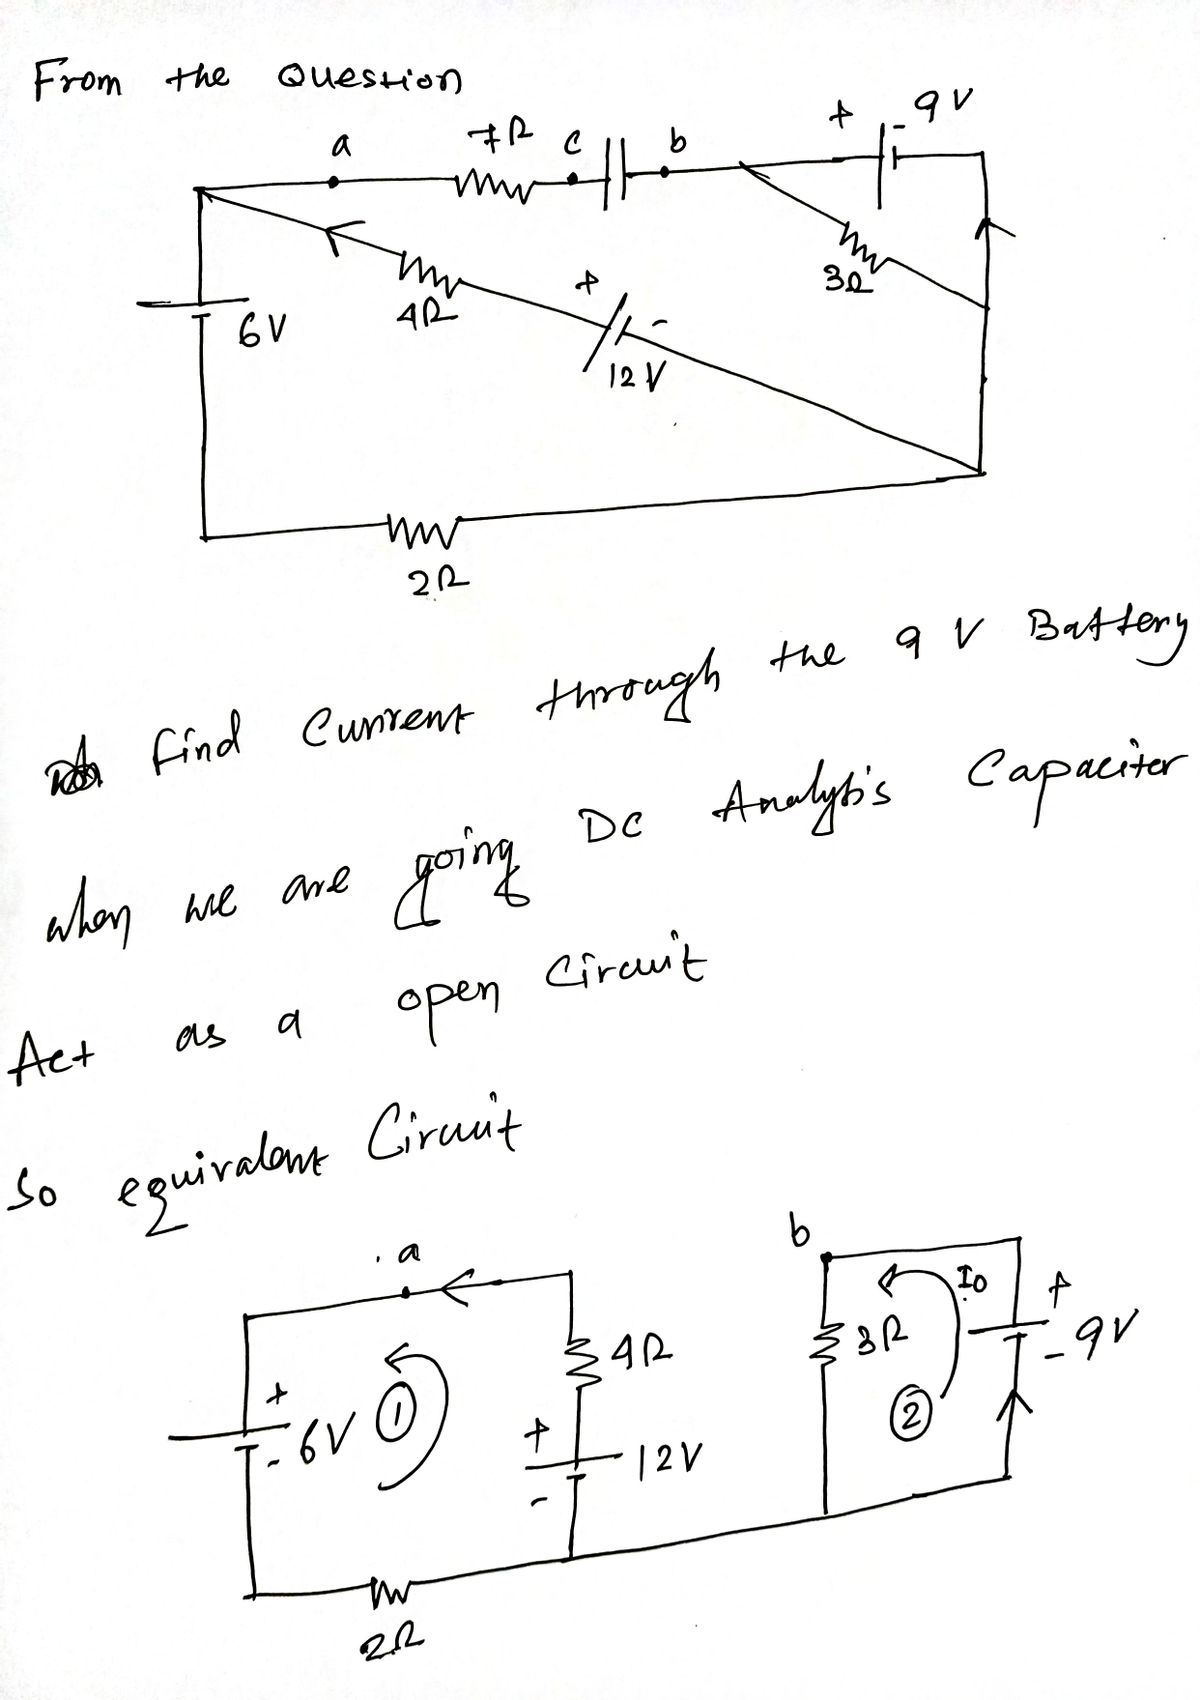 From the Question
a 7Ω c b + - 9V
4Ω + - 12V 3Ω
6V
2Ω
find Current through the 9 V Battery
when we are going DC Analysis Capaciter
Act as a open Circuit
So equivalent Circuit
a b
4Ω 3Ω I0 + - 9V
+ - 6V 1 + - 12V 2
2Ω